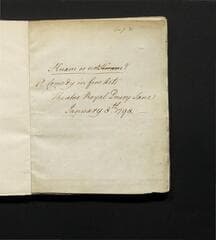 Knave or not
A Comedy in five Acts
Theatre Royal Drury Lane
January 8th 1798